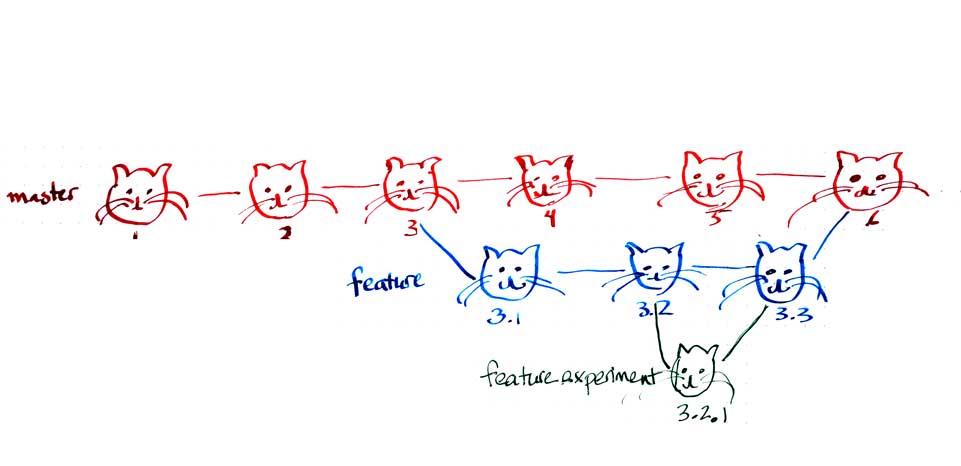 master
1 2 3 4 5 6
feature
3.1 3.2 3.3
feature experiment
3.2.1